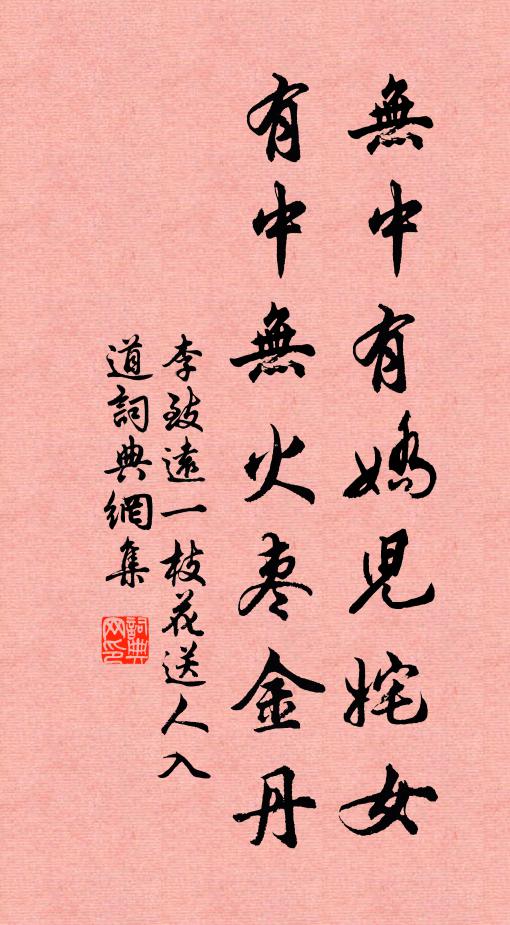 無中有嬌兒姹女
有中無火枣金丹
李致遠一枝花送人入
道詞典網集
詞典网印